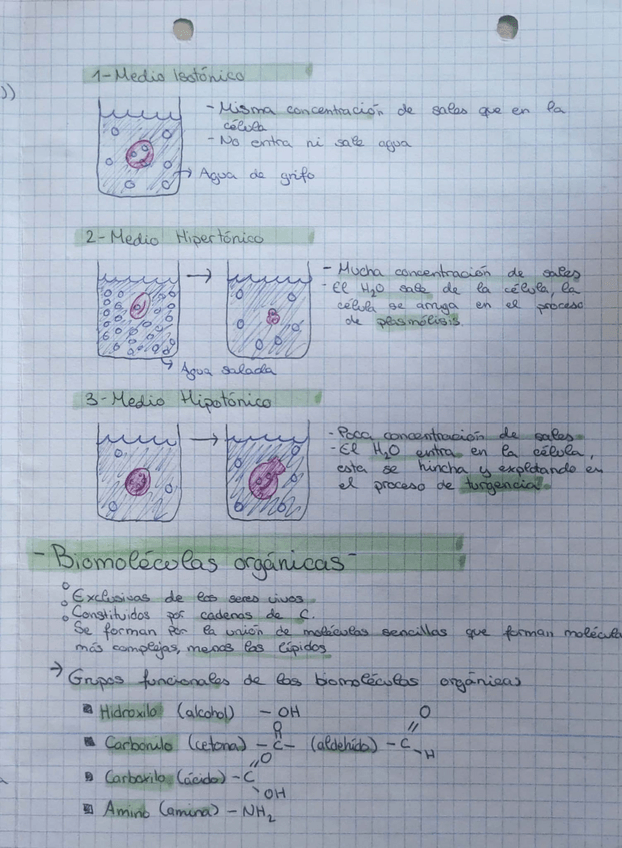 ))
1-Medio Isotónico
- Misma concentración de sales que en la
célula
- No entra ni sale agua
→ Agua de grifo
2-Medio Hipertónico
- Mucha concentración de sales
- El H₂O sale de la célula, la
célula se arruga en el proceso
de plasmólisis.
→ Agua salada
3-Medio Hipotónico
- Poca concentración de sales
- El H₂O entra en la célula,
esta se hincha y explotando en
el proceso de turgencia.
- Biomoléculas orgánicas -
Exclusivas de los seres vivos
Constituidos por cadenas de C.
Se forman por la unión de moléculas sencillas que forman molécu
más complejas, menos los lípidos
→ Grupos funcionales de las biomoléculas orgánicas
Hidroxilo (alcohol) - OH
Carbonilo (cetona) - C - (aldehído) - C
O
O
H
Carboxilo (ácido) - C
O
OH
Amino (amina) - NH₂